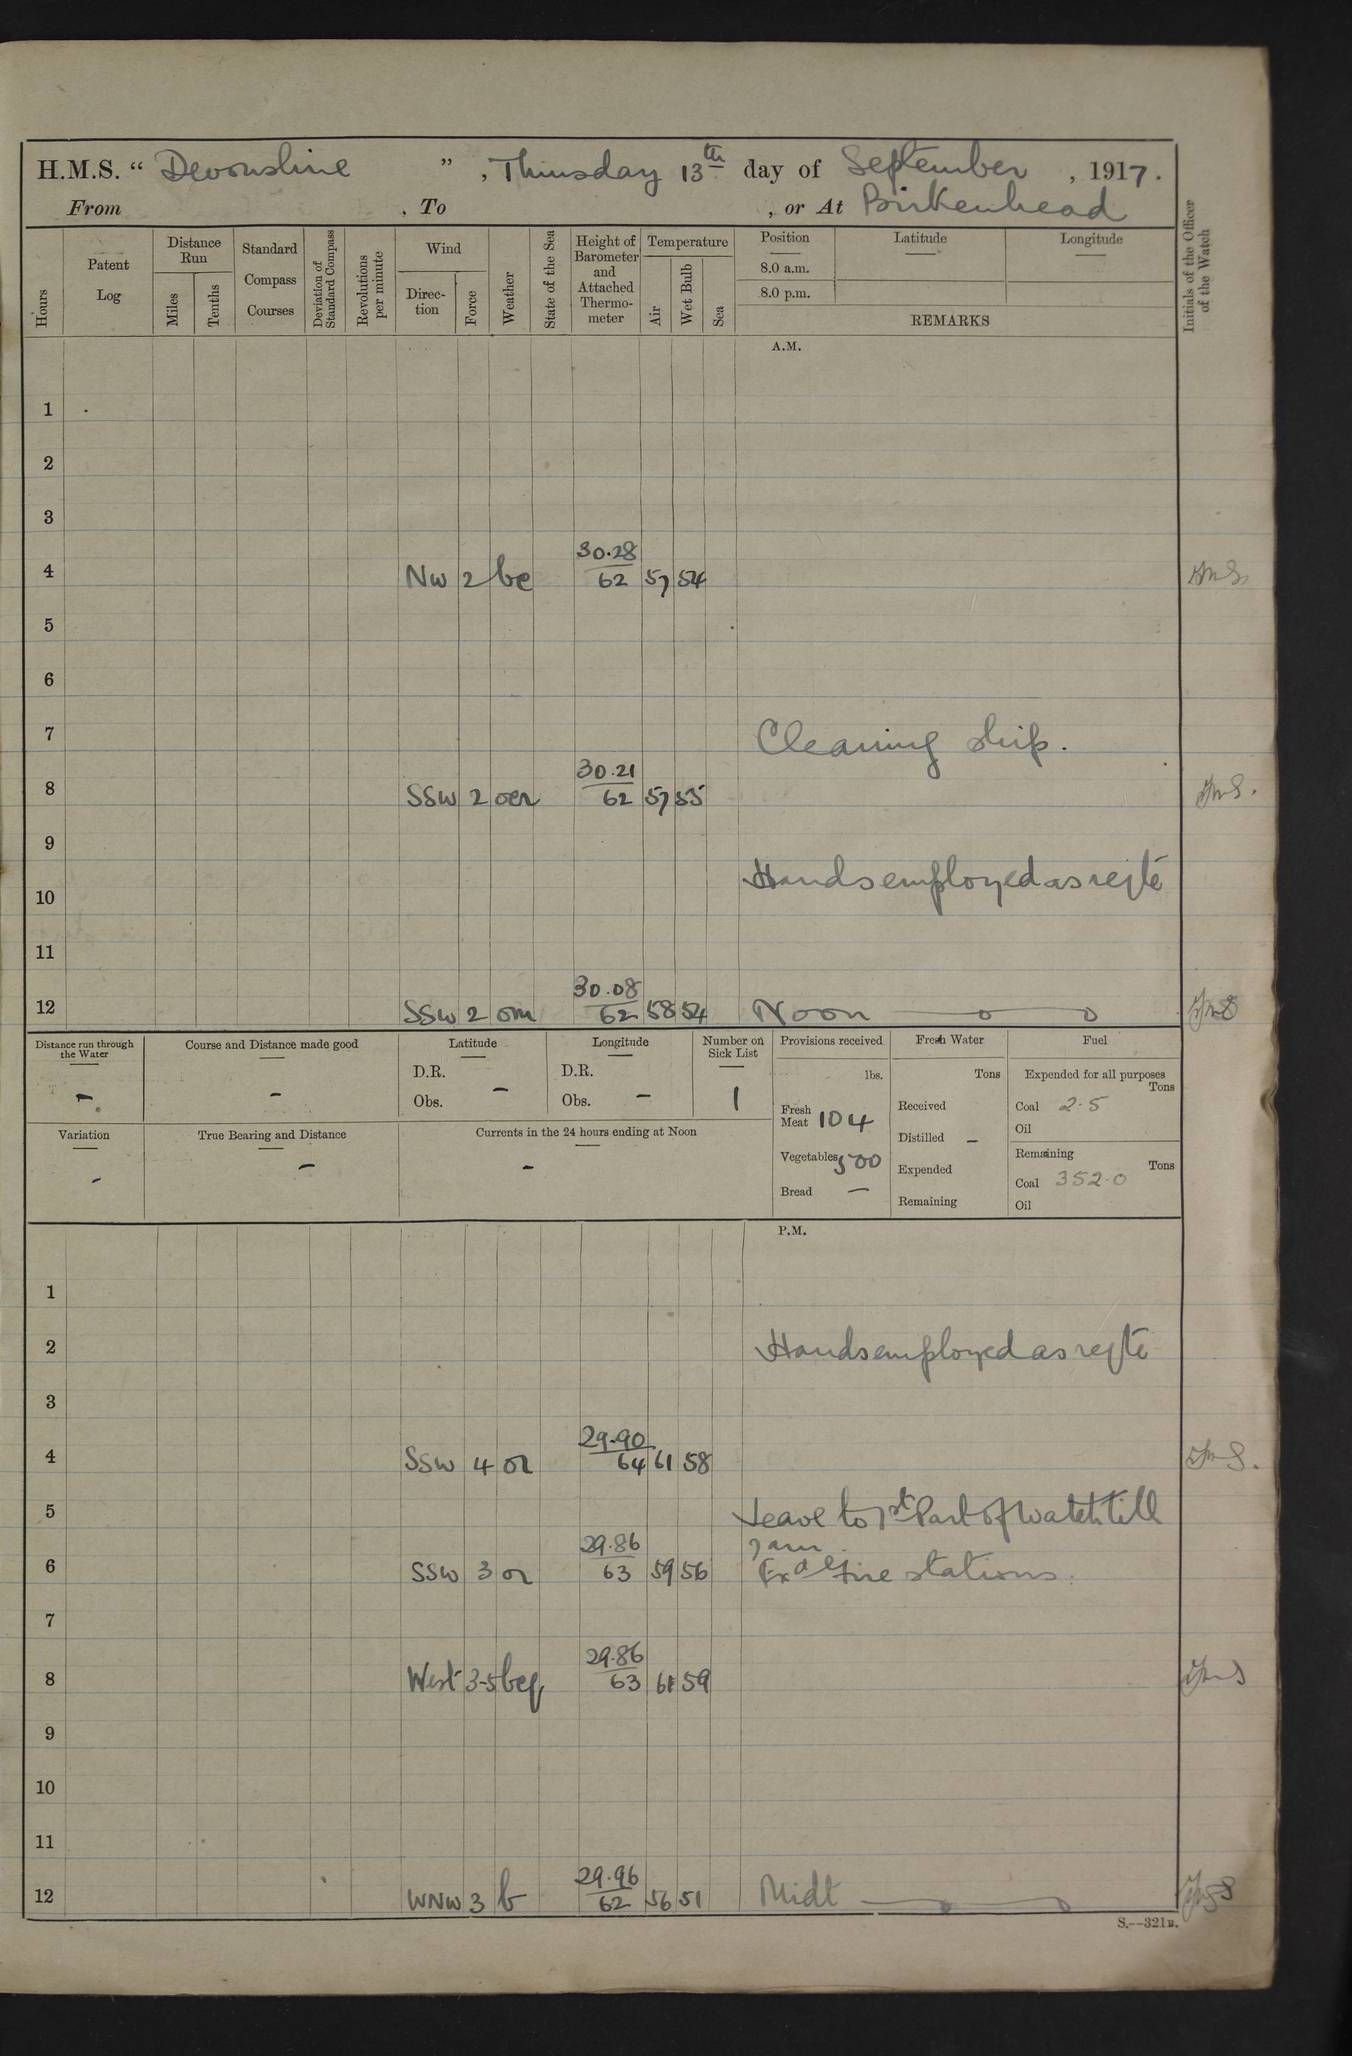 H.M.S. “ Devonshire ”, Thursday 13th day of September, 1917.
From , To , or At Birkenhead
Hours
Patent Log
Distance Run
Miles
Tenths
Standard Compass Courses
Deviation of Standard Compass
Revolutions per minute
Wind
Direc-tion
Force
Weather
State of the Sea
Height of Barometer and Attached Thermo-meter
Temperature
Air
Wet Bulb
Sea
Position
8.0 a.m.
8.0 p.m.
Latitude
Longitude
REMARKS
Initials of the Officer of the Watch
A.M.
1
2
3
30.28
4 NW 2 bc 62 57 54
5
6
7 Cleaning ship.
30.21
8 SSW 2 ocr 62 57 55
9
Hands employed as reqte
10
11
30.08
12 SSW 2 om 62 58 54 Noon
Distance run through the Water
-
Course and Distance made good
-
Latitude
D.R.
Obs. -
Longitude
D.R.
Obs. -
Number on Sick List
1
Provisions received
lbs.
Fresh Meat 104
Vegetables 500
Bread -
Fresh Water
Tons
Received
Distilled -
Expended
Remaining
Fuel
Expended for all purposes
Tons
Coal 2.5
Oil
Remaining
Tons
Coal 352.0
Oil
Variation
-
True Bearing and Distance
-
Currents in the 24 hours ending at Noon
-
P.M.
1
2 Hands employed as reqte
3
29.90
4 SSW 4 or 64 61 58
5 Leave to 1st Part of Watch till
29.86 7 am.
6 SSW 3 or 63 59 56 Exd Fire stations.
7
29.86
8 West 3-5 bcq 63 61 59
9
10
11
29.96
12 WNW 3 b 62 56 51 Midt
S.—321B.